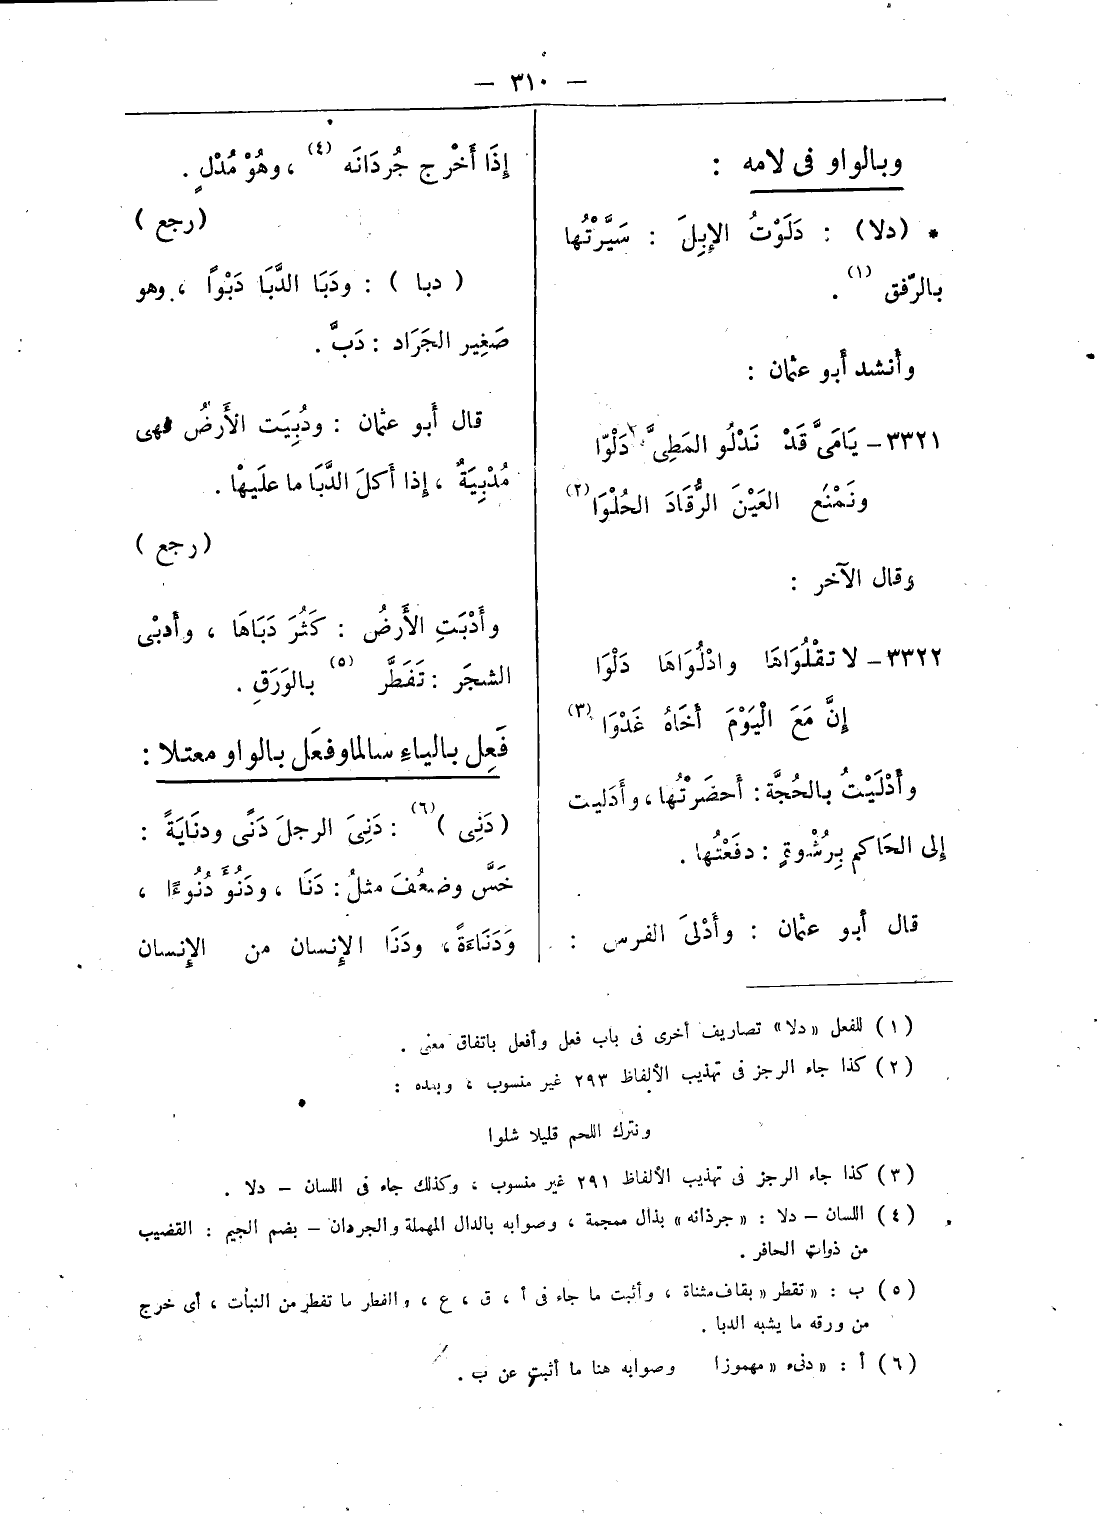 — ٣١٠ —
وبالواو فى لامه :
* (دلا) : دَلَوْتُ الإِبِلَ : سَيَّرْتُها
بالرّفق (١) .
وأنشد أبو عثمان :
٣٣٢١ – يَامَىَّ قَدْ نَدْلُو المَطِىَّ دَلْوَا
ونَمْنَع العَيْنَ الرُّقَادَ الحُلْوَا (٢)
وقال الآخر :
٣٣٢٢ – لا تقْلُوَاهَا وادْلُوَاهَا دَلْوَا
إِنَّ مَعَ الْيَوْمَ أَخَاهُ غَدْوَا (٣)
وأَدْلَيْتُ بالحُجَّة : أَحضَرْتُها ، وأَدَليت
إلى الحَاكم بِرُشْوةٍ : دفَعْتُها .
قال أبو عثمان : وأَدْلىَ الفرس :
إِذَا أَخْرج جُردَانَه (٤) ، وهُوْ مُدْلٍ .
(رجع )
( دبا ) : ودَبَا الدَّبَا دَبْواً ، وهو
صَغِير الجَرَاد : دَبَّ .
قال أَبو عثمان : ودُبِيَت الأَرضُ فهى
مُدْبِيَةٌ ، إِذا أَكلَ الدَّبَا ما علَيهْا .
(رجع )
وأَدْبَتِ الأَرضُ : كَثُرَ دَبَاهَا ، وأَدبْى
الشجَر : تَفَطَّر (٥) بالوَرَقِ .
فَعِل بالياءِ سالما وفعَل بالواو معتلا :
( دَنِى ) (٦) : دَنِىَ الرجلَ دَنًى ودنَايَةً :
خَسَّ وضعُفَ مثلُ : دَنَا ، ودَنُوَّ دُنُوءًا ،
وَدَنَاءَةً ، ودَنَا الإِنسان من الإِنسان
(١) للفعل «دلا» تصاريف أخرى فى باب فعل وأفعل باتفاق معنى .
(٢) كذا جاء الرجز فى تهذيب الألفاظ ٢٩٣ غير منسوب ، وبعده :
ونترك اللحم قليلا شلوا
(٣) كذا جاء الرجز فى تهذيب الألفاظ ٢٩١ غير منسوب ، وكذلك جاء فى اللسان – دلا .
(٤) اللسان – دلا : «جرذانه» بذال معجمة ، وصوابه بالدال المهملة والجردان – بضم الجيم : القضيب
من ذوات الحافر .
(٥) ب : «تقطر» بقاف مثناة ، وأثبت ما جاء فى أ ، ق ، ع ، والفطر ما تفطر من النبات ، أى خرج
من ورقه ما يشبه الدبا .
(٦) أ : «دنىء» مهموزا وصوابه هنا ما أثبت عن ب .